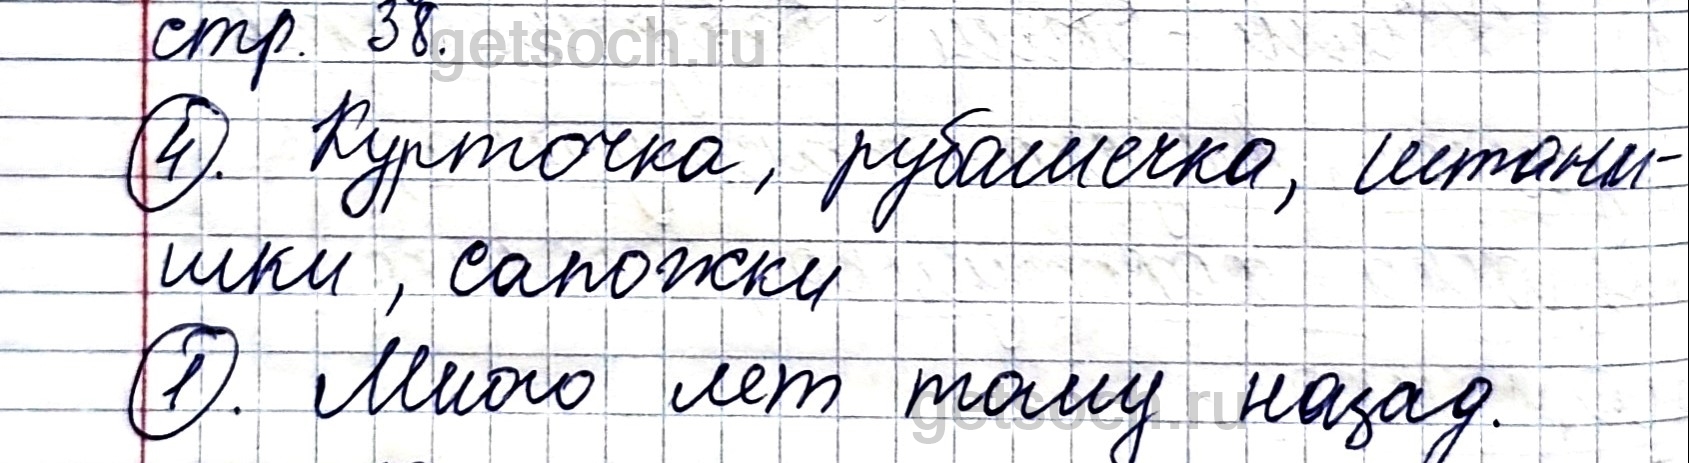 стр. 38.
getsoch.ru
4. Курточка, рубашечка, штани-
шки, сапожки
1. Много лет тому назад.
getsoch.ru